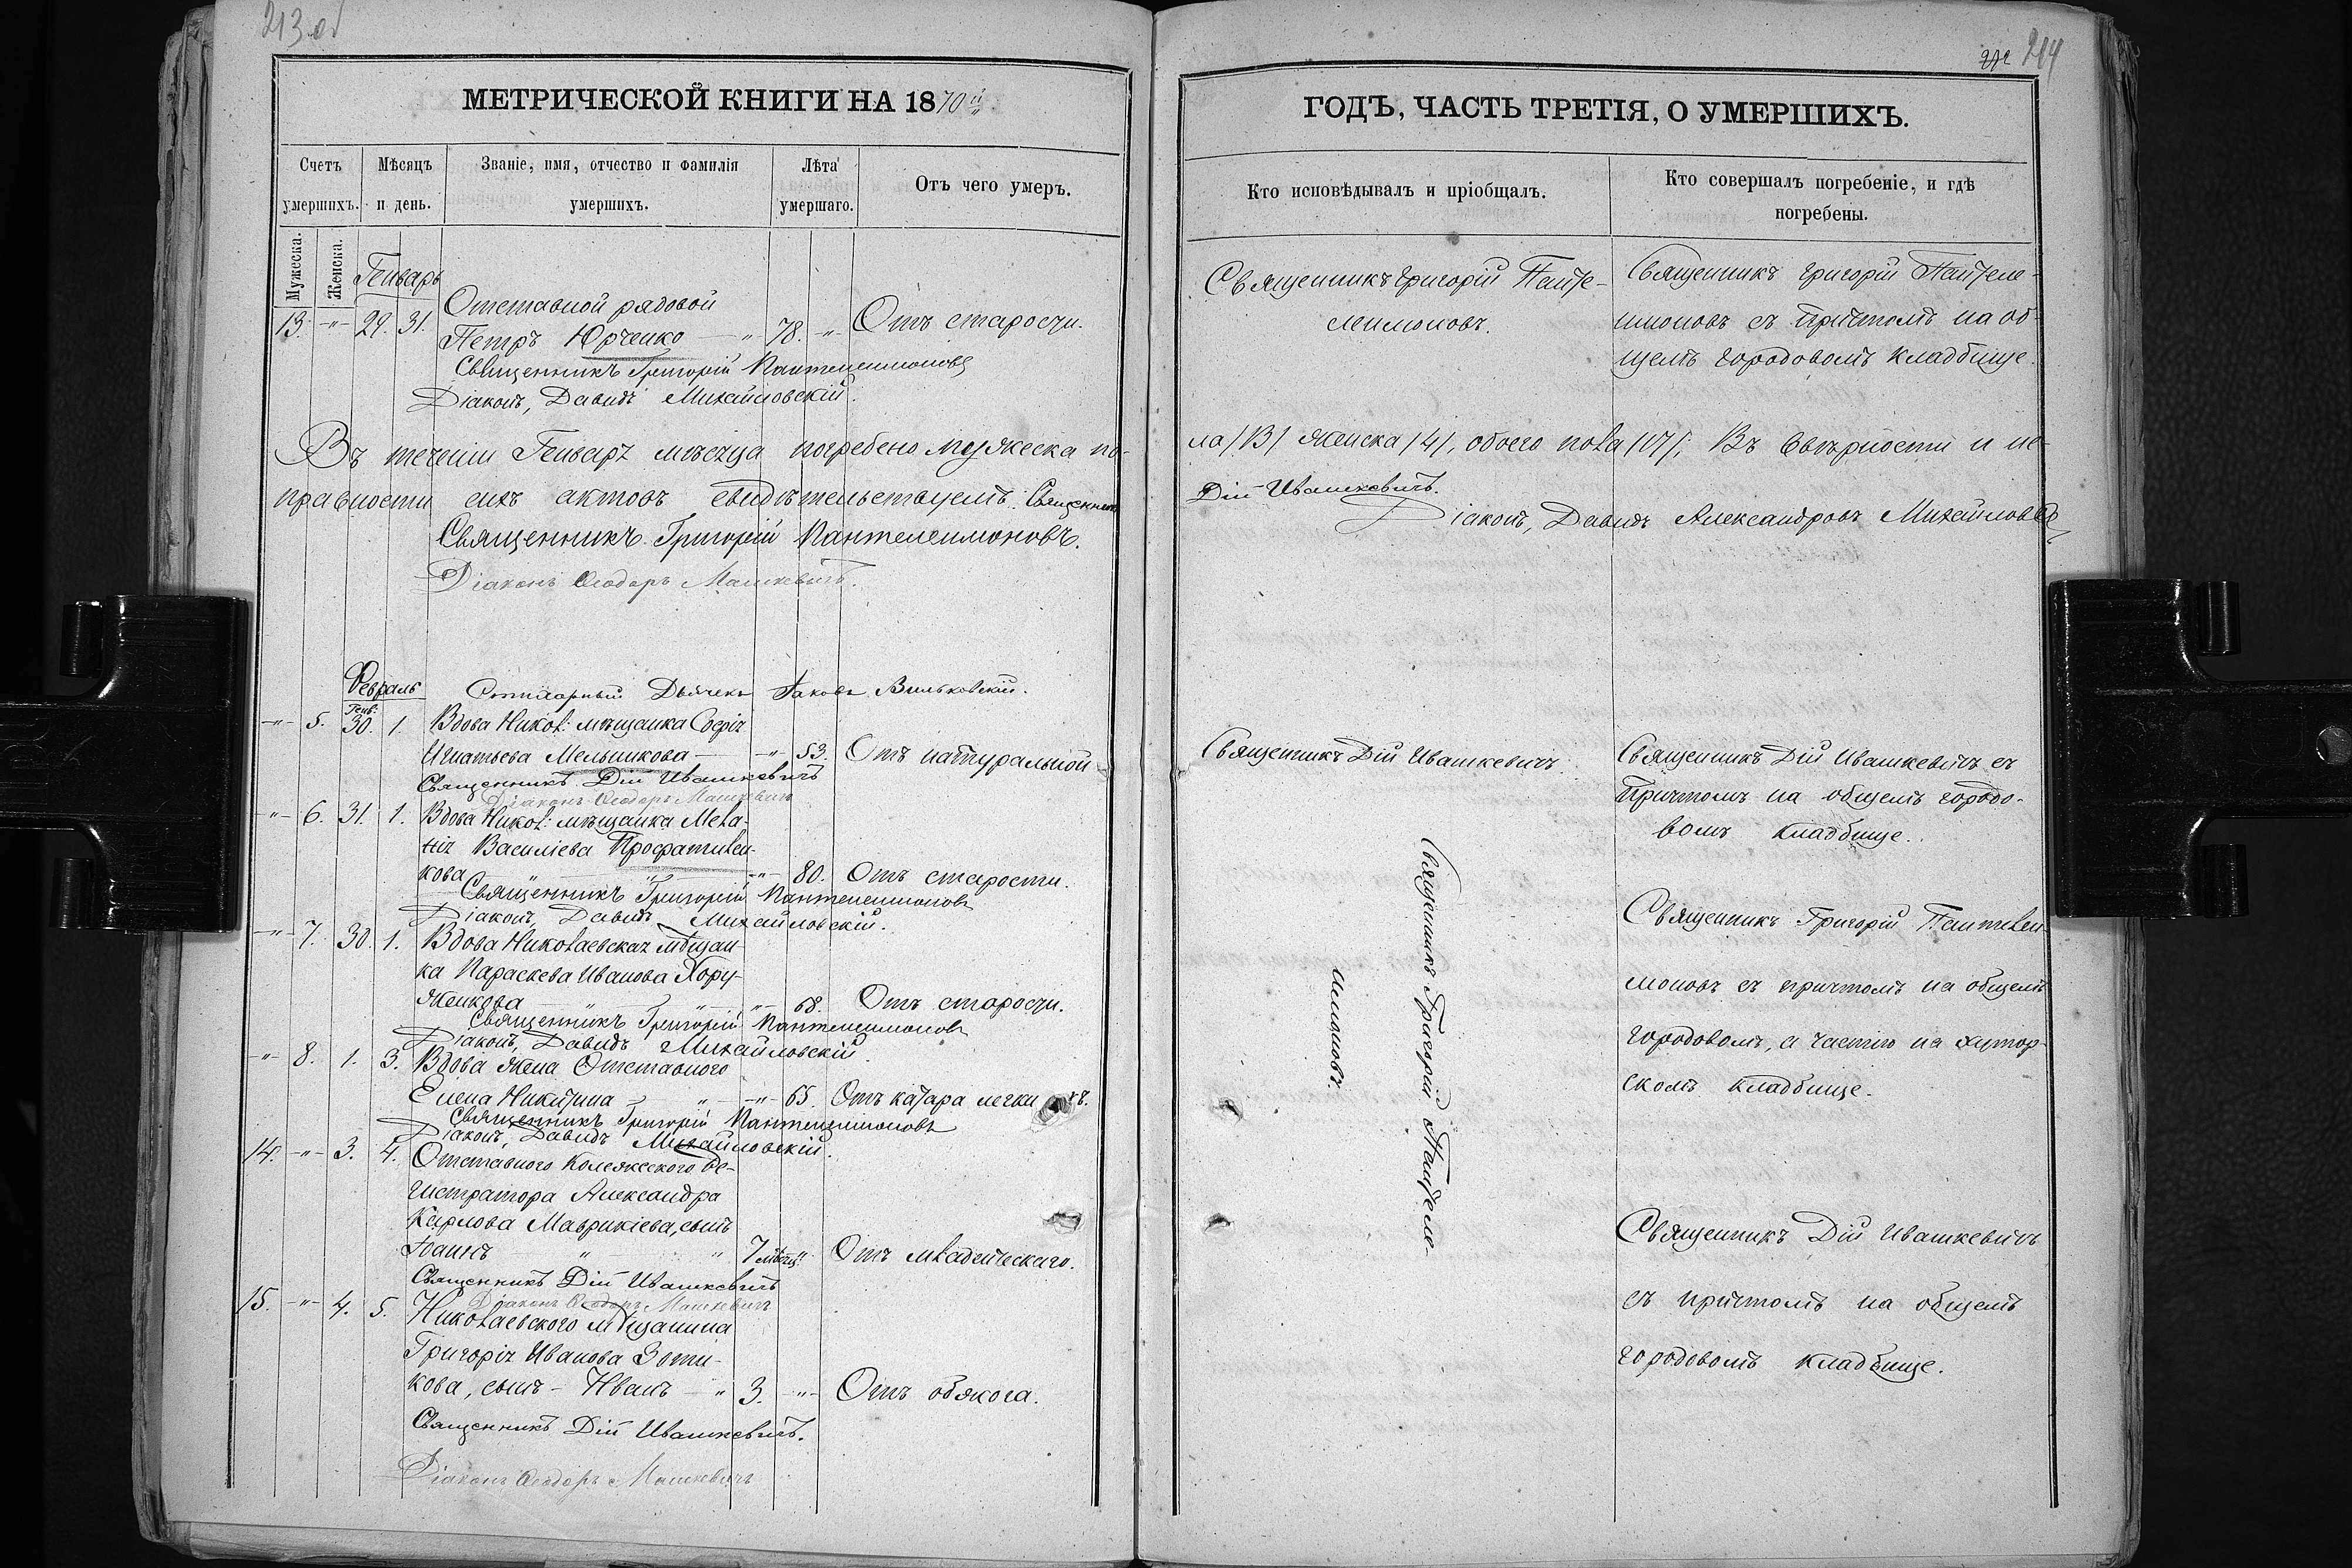 213 об
МЕТРИЧЕСКОЙ КНИГИ НА 1870й
Счетъ умершихъ.
Мѣсяцъ и день.
Званіе, имя, отчество и фамилія умершихъ.
Лѣта умершаго.
Отъ чего умеръ.
Мужеска.
Женска.
Генварь
13. -"- 29. 31. Отставной рядовой
Петръ Юрченко — " 78. -"- Отъ старости.
Священникъ Григорій Пантелеимоновъ
Діаконъ, Давидъ Михайловскій.
Въ теченіи Генваря мѣсяца погребено мужеска по-
правности сихъ актовъ свидѣтельствуемъ: Священникъ
Священникъ Григорій Пантелеимоновъ.
Діаконъ Ѳеодоръ Машкевичъ.
Февраль
Дьячекъ Іаковъ Вильковскій.
-"- 5. Генв: 30. 1. Вдова Никол: мѣщанка Софія
Игнатьева Мельникова — -"- 53. Отъ натуральной
Священникъ Дій Ивашкевичъ
Діаконъ Ѳеодоръ Машкевичъ
-"- 6. 31. 1. Вдова Никол: мѣщанка Мела-
нія Василіева
кова -"- 80. Отъ старости.
Священникъ Григорій Пантелеимоновъ
Діаконъ, Давидъ Михайловскій.
-"- 7. 30. 1. Вдова Николаевская мѣщан-
ка Параскева Иванова Хору-
женкова " " -"- 68. Отъ старости.
Священникъ Григорій Пантелеимоновъ
Діаконъ, Давидъ Михайловскій.
-"- 8. 1. 3. Вдова жена Отставного
Елена Никитина " -"- 65. Отъ катара легки
Священникъ Григорій Пантелеимоновъ
Діаконъ, Давидъ Михайловскій.
14. -"- 3. 4. Отставного Колежского Ре-
гистратора Александра
Карлова Маврикіева, сынъ
Іоаннъ " " 7 мѣсяц: Отъ младенческаго.
Священникъ Дій Ивашкевичъ
Діаконъ Ѳеодоръ Машкевичъ
15. -"- 4. 5. Николаевского мѣщанина
Григорія Иванова Зоти-
кова, сынъ - Иванъ — " 3. -"- Отъ обжога.
Священникъ Дій Ивашкевичъ.
Діаконъ Ѳеодоръ Машкевичъ
214
ГОДЪ, ЧАСТЬ ТРЕТІЯ, О УМЕРШИХЪ.
Кто исповѣдывалъ и пріобщалъ.
Кто совершалъ погребеніе, и гдѣ погребены.
Священникъ Григорій Панте-
леимоновъ.
Священникъ Григорій Пантеле-
имоновъ съ Причтомъ на об-
щемъ городовомъ кладбище.
ла /13/ женска /4/, обоего пола /17/; Въ вѣрности и не-
Дій Ивашкевичъ.
Діаконъ, Давидъ Александровъ Михайловскій
Священникъ Дій Ивашкевичъ.
Священникъ Дій Ивашкевичъ съ
Причтомъ на общемъ городо-
вомъ кладбище.
Священникъ Григорій Пантеле-
имоновъ.
Священникъ Григорій Пантелеи-
моновъ съ причтомъ на общемъ
городовомъ, а частію на хутор-
скомъ кладбище.
Священникъ Дій Ивашкевичъ
съ причтомъ на общемъ
городовомъ кладбище.